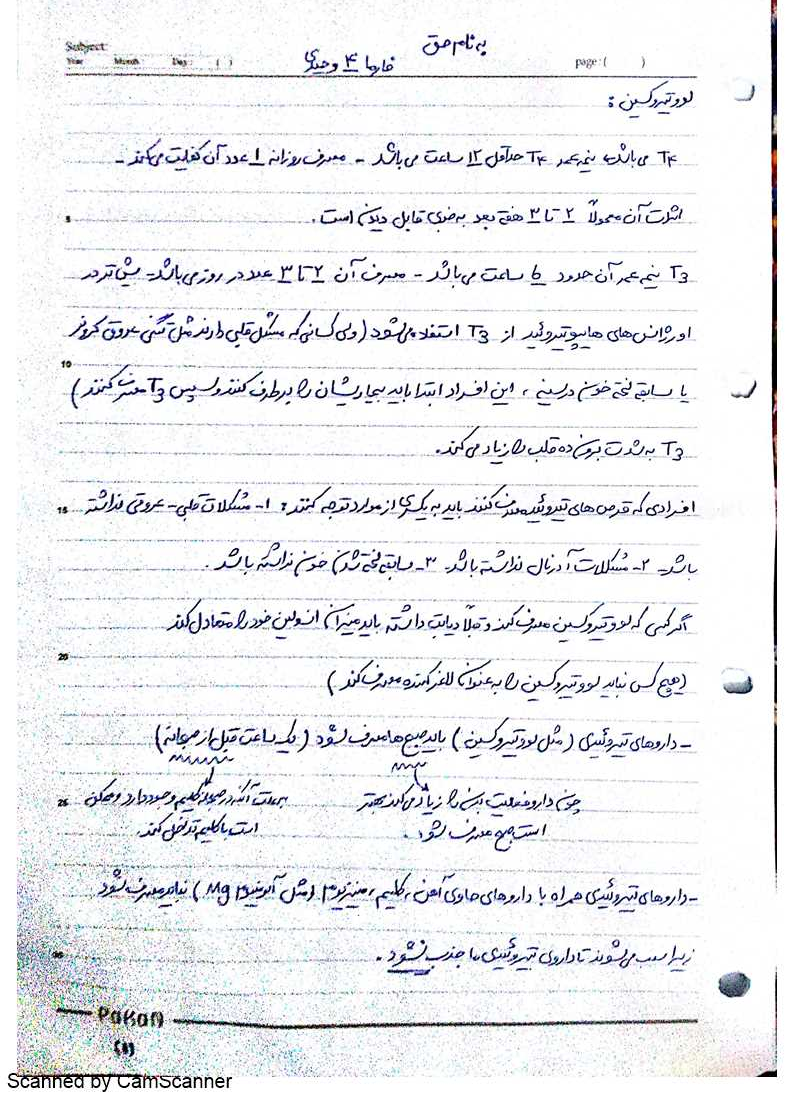 Subject:
Year Month Day: ( )
به نام حق
فارما ۴ وحیدی
page: ( )
لووتیروکسین :
T۴ می باشد، نیمه عمر T۴ حداقل ۱۲ ساعت می باشد - مصرف روزانه ۱ عدد آن کفایت می کند -
اثرات آن معمولاً ۲ تا ۳ هفته بعد به خوبی قابل دیدن است.
T3 نیمه عمر آن حدود ۶ ساعت می باشد - مصرف آن ۲ تا ۳ عدد در روز می باشد - بیشتر در
اورژانس های هایپوتیروئید از T3 استفاده می شود (ولی کسانی که مشکل قلبی دارند مثل تنگی عروق کرونر
یا سابقه لخته خون در سینه ، این افراد ابتدا باید بیماریشان را برطرف کنند و سپس T3 مصرف کنند)
T3 به شدت برون ده قلب را زیاد می کند.
افرادی که قرص های تیروئید مصرف کنند باید به یکسری از موارد توجه کنند : ۱- مشکلات قلبی - عروقی نداشته
باشد - ۲- مشکلات آدرنال نداشته باشد - ۳- سابقه لخته شدن خون نداشته باشد .
اگر کسی که لووتیروکسین مصرف کند و قبلاً دیابت داشته باید میزان انسولین خود را متعادل کند
(هیچ کس نباید لووتیروکسین را به عنوان لاغر کننده مصرف کند)
- داروهای تیروئیدی (مثل لووتیروکسین) باید صبح ها مصرف شود (یک ساعت قبل از صبحانه)
چون دارو فعالیت بدن را زیاد می کند بهتر
است صبح مصرف شود .
به علت آنکه در صبحانه کلیم وجود دارد و ممکن
است با کلیم تداخل کند.
- داروهای تیروئیدی همراه با داروهای حاوی آهن ، کلیم ، منیزیوم (مثل آلومنیوم Mg) نباید مصرف شود
زیرا سبب می شوند تا داروی تیروئیدی ما جذب نشود .
5
10
15
20
25
PaKaN
(1)
Scanned by CamScanner